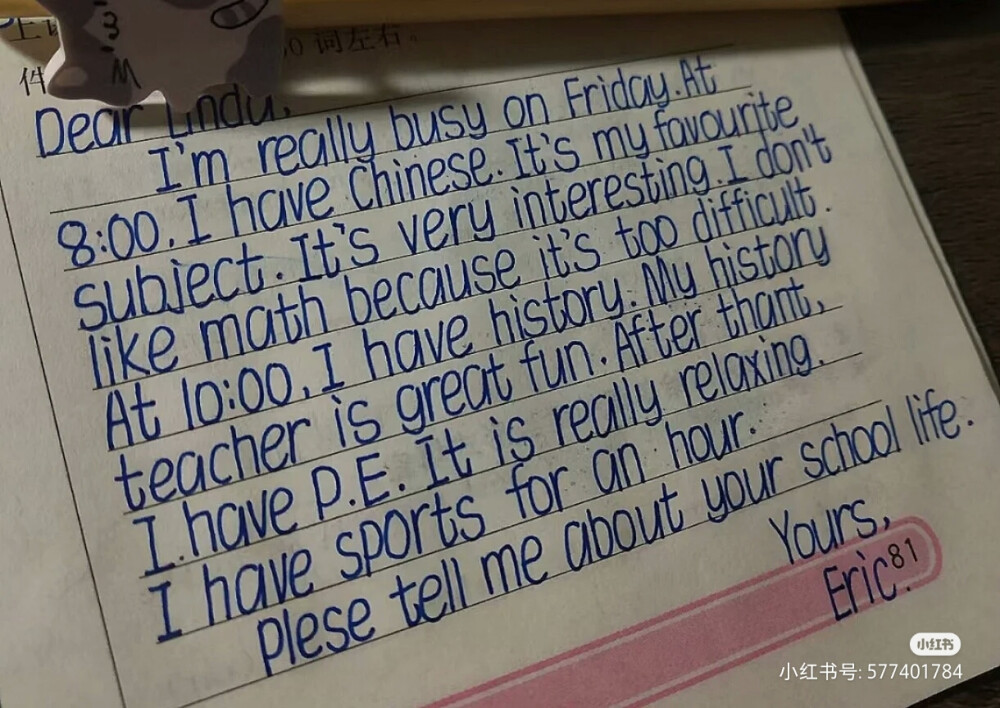 词左右。
件
Dear
I'm really busy on Friday. At
8:00. I have Chinese. It's my favourite
subject. It's very interesting. I don't
like math because it's too difficult.
At 10:00. I have history. My history
teacher is great fun. After thant,
I have P.E. It is really relaxing.
I have sports for an hour.
Plese tell me about your school life.
Yours,
Eric.
81
小红书
小红书号: 577401784